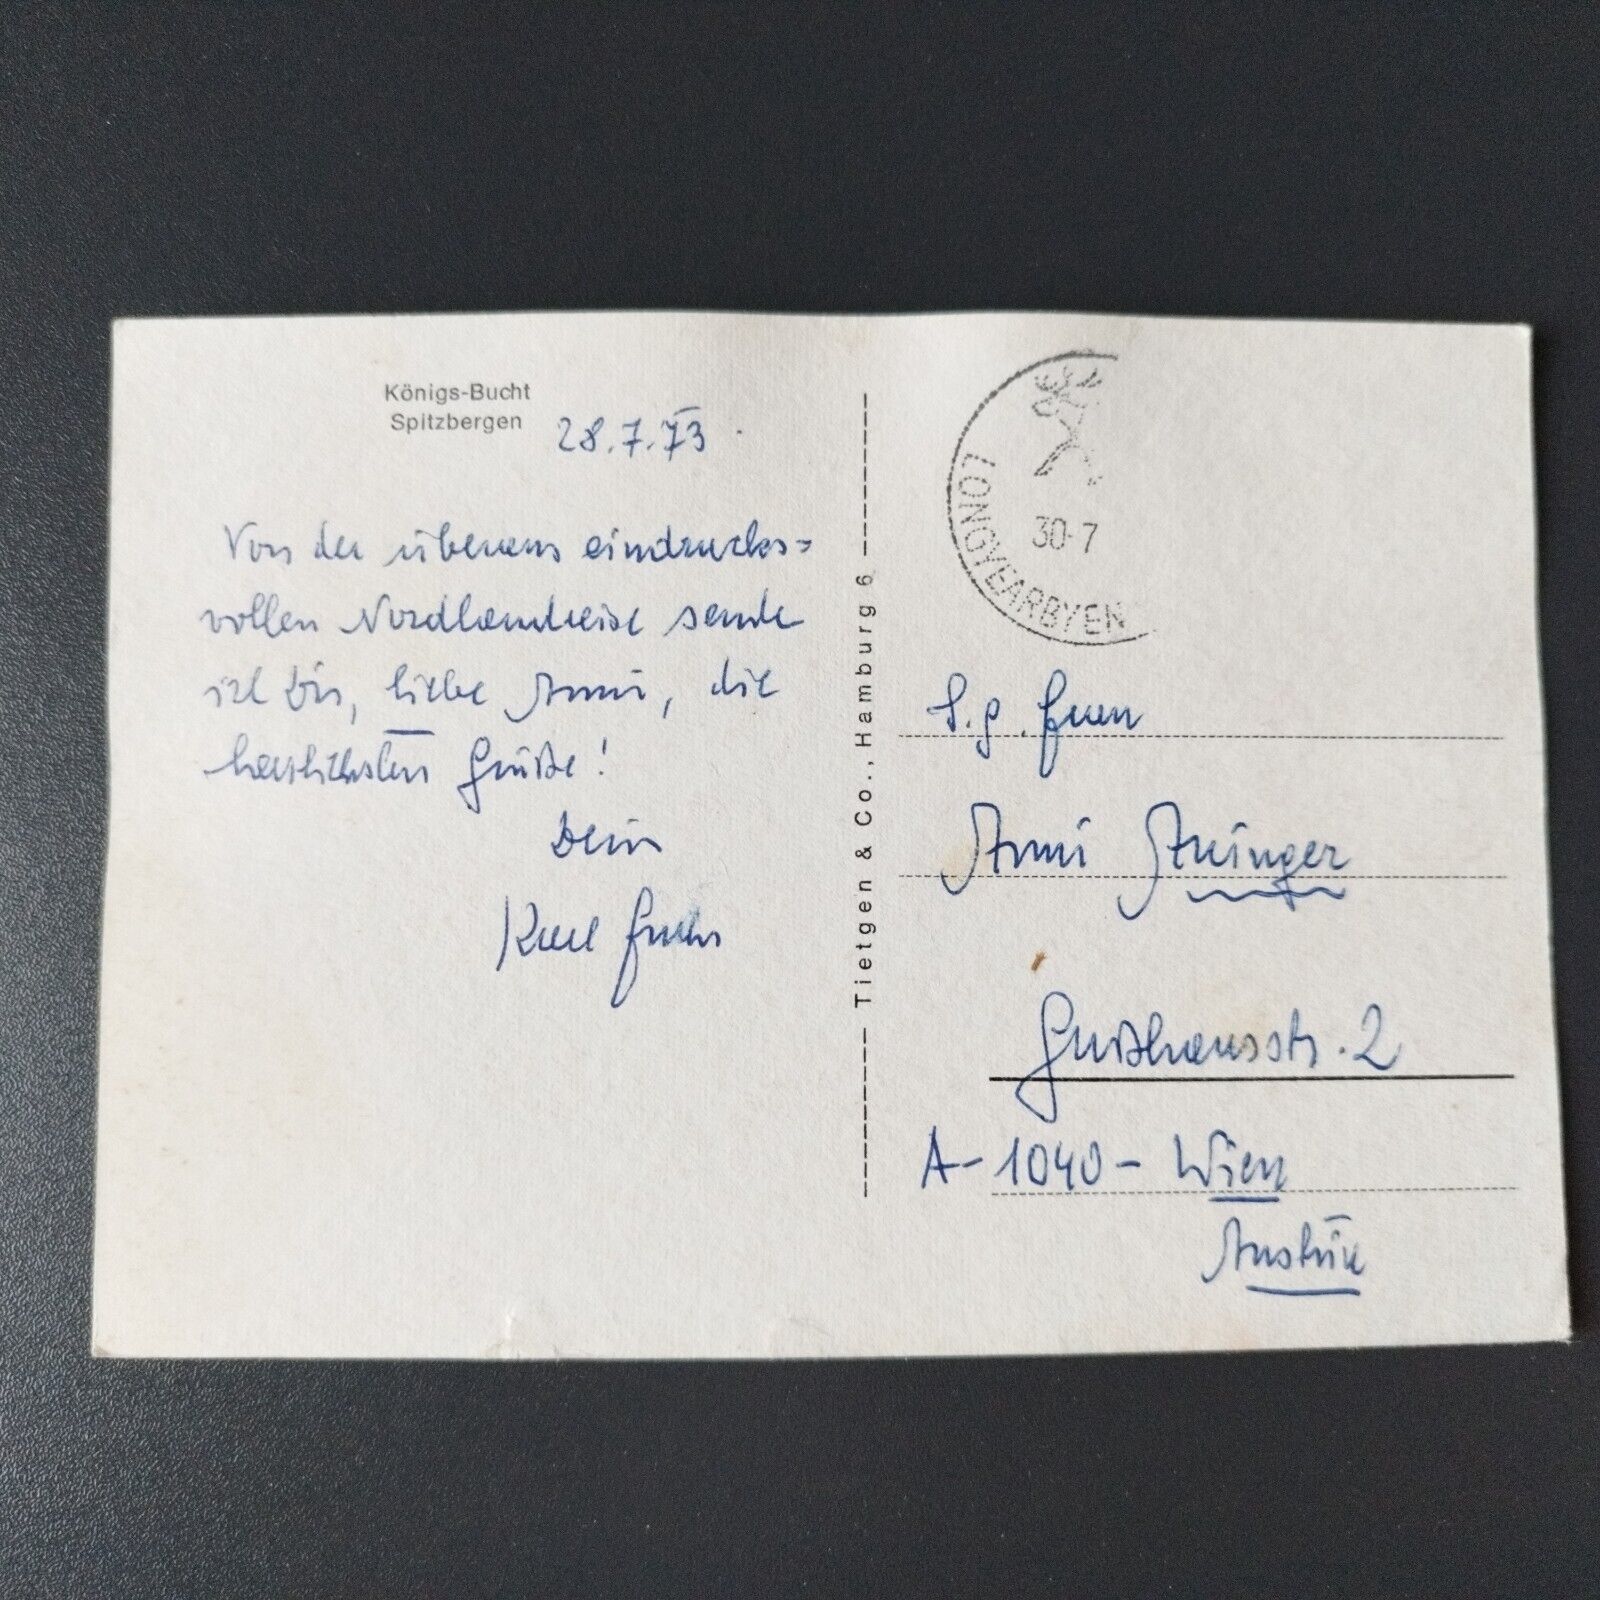 Königs-Bucht
Spitzbergen
28.7.73.
Von der überaus eindrucks=
vollen Nordlandreise sende
ich Dir, liebe Anni, die
herzlichsten Grüße!
Dein
Karl Fuchs
Tietgen & Co., Hamburg 6
LONGYEARBYEN
30-7
S.g. Frau
Anni
Gußhausstr. 2
A-1040-Wien
Austria